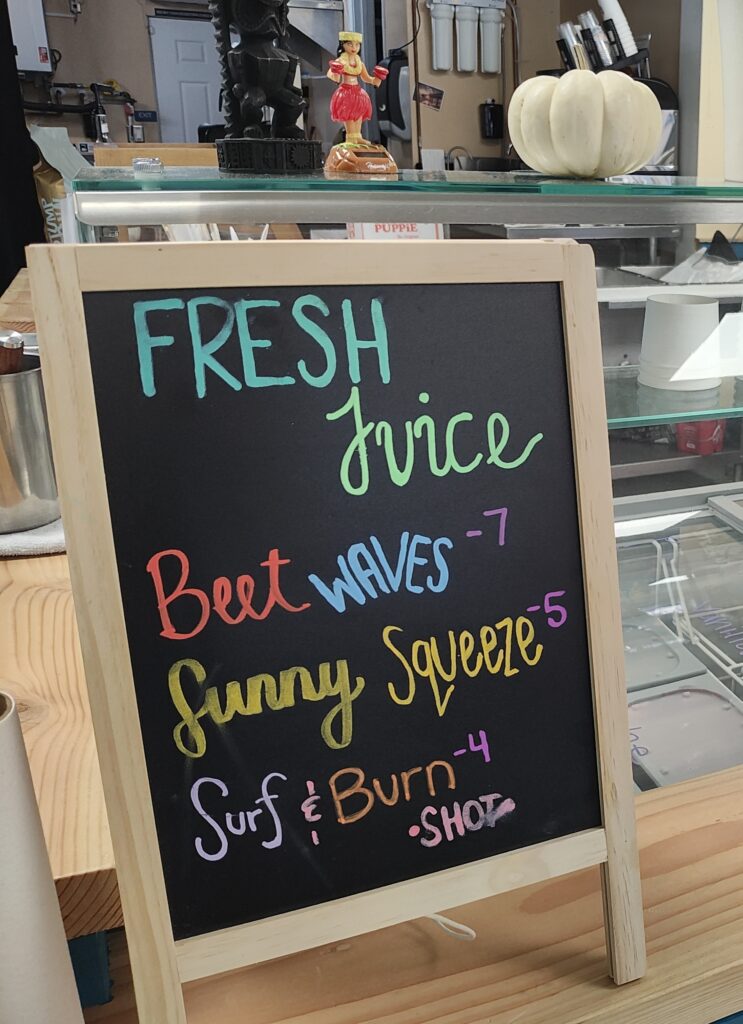 EXIT
PUPPiE
FRESH
Juice
Beet WAVES -7
Sunny Squeeze -5
Surf & Burn -4
•SHOT•